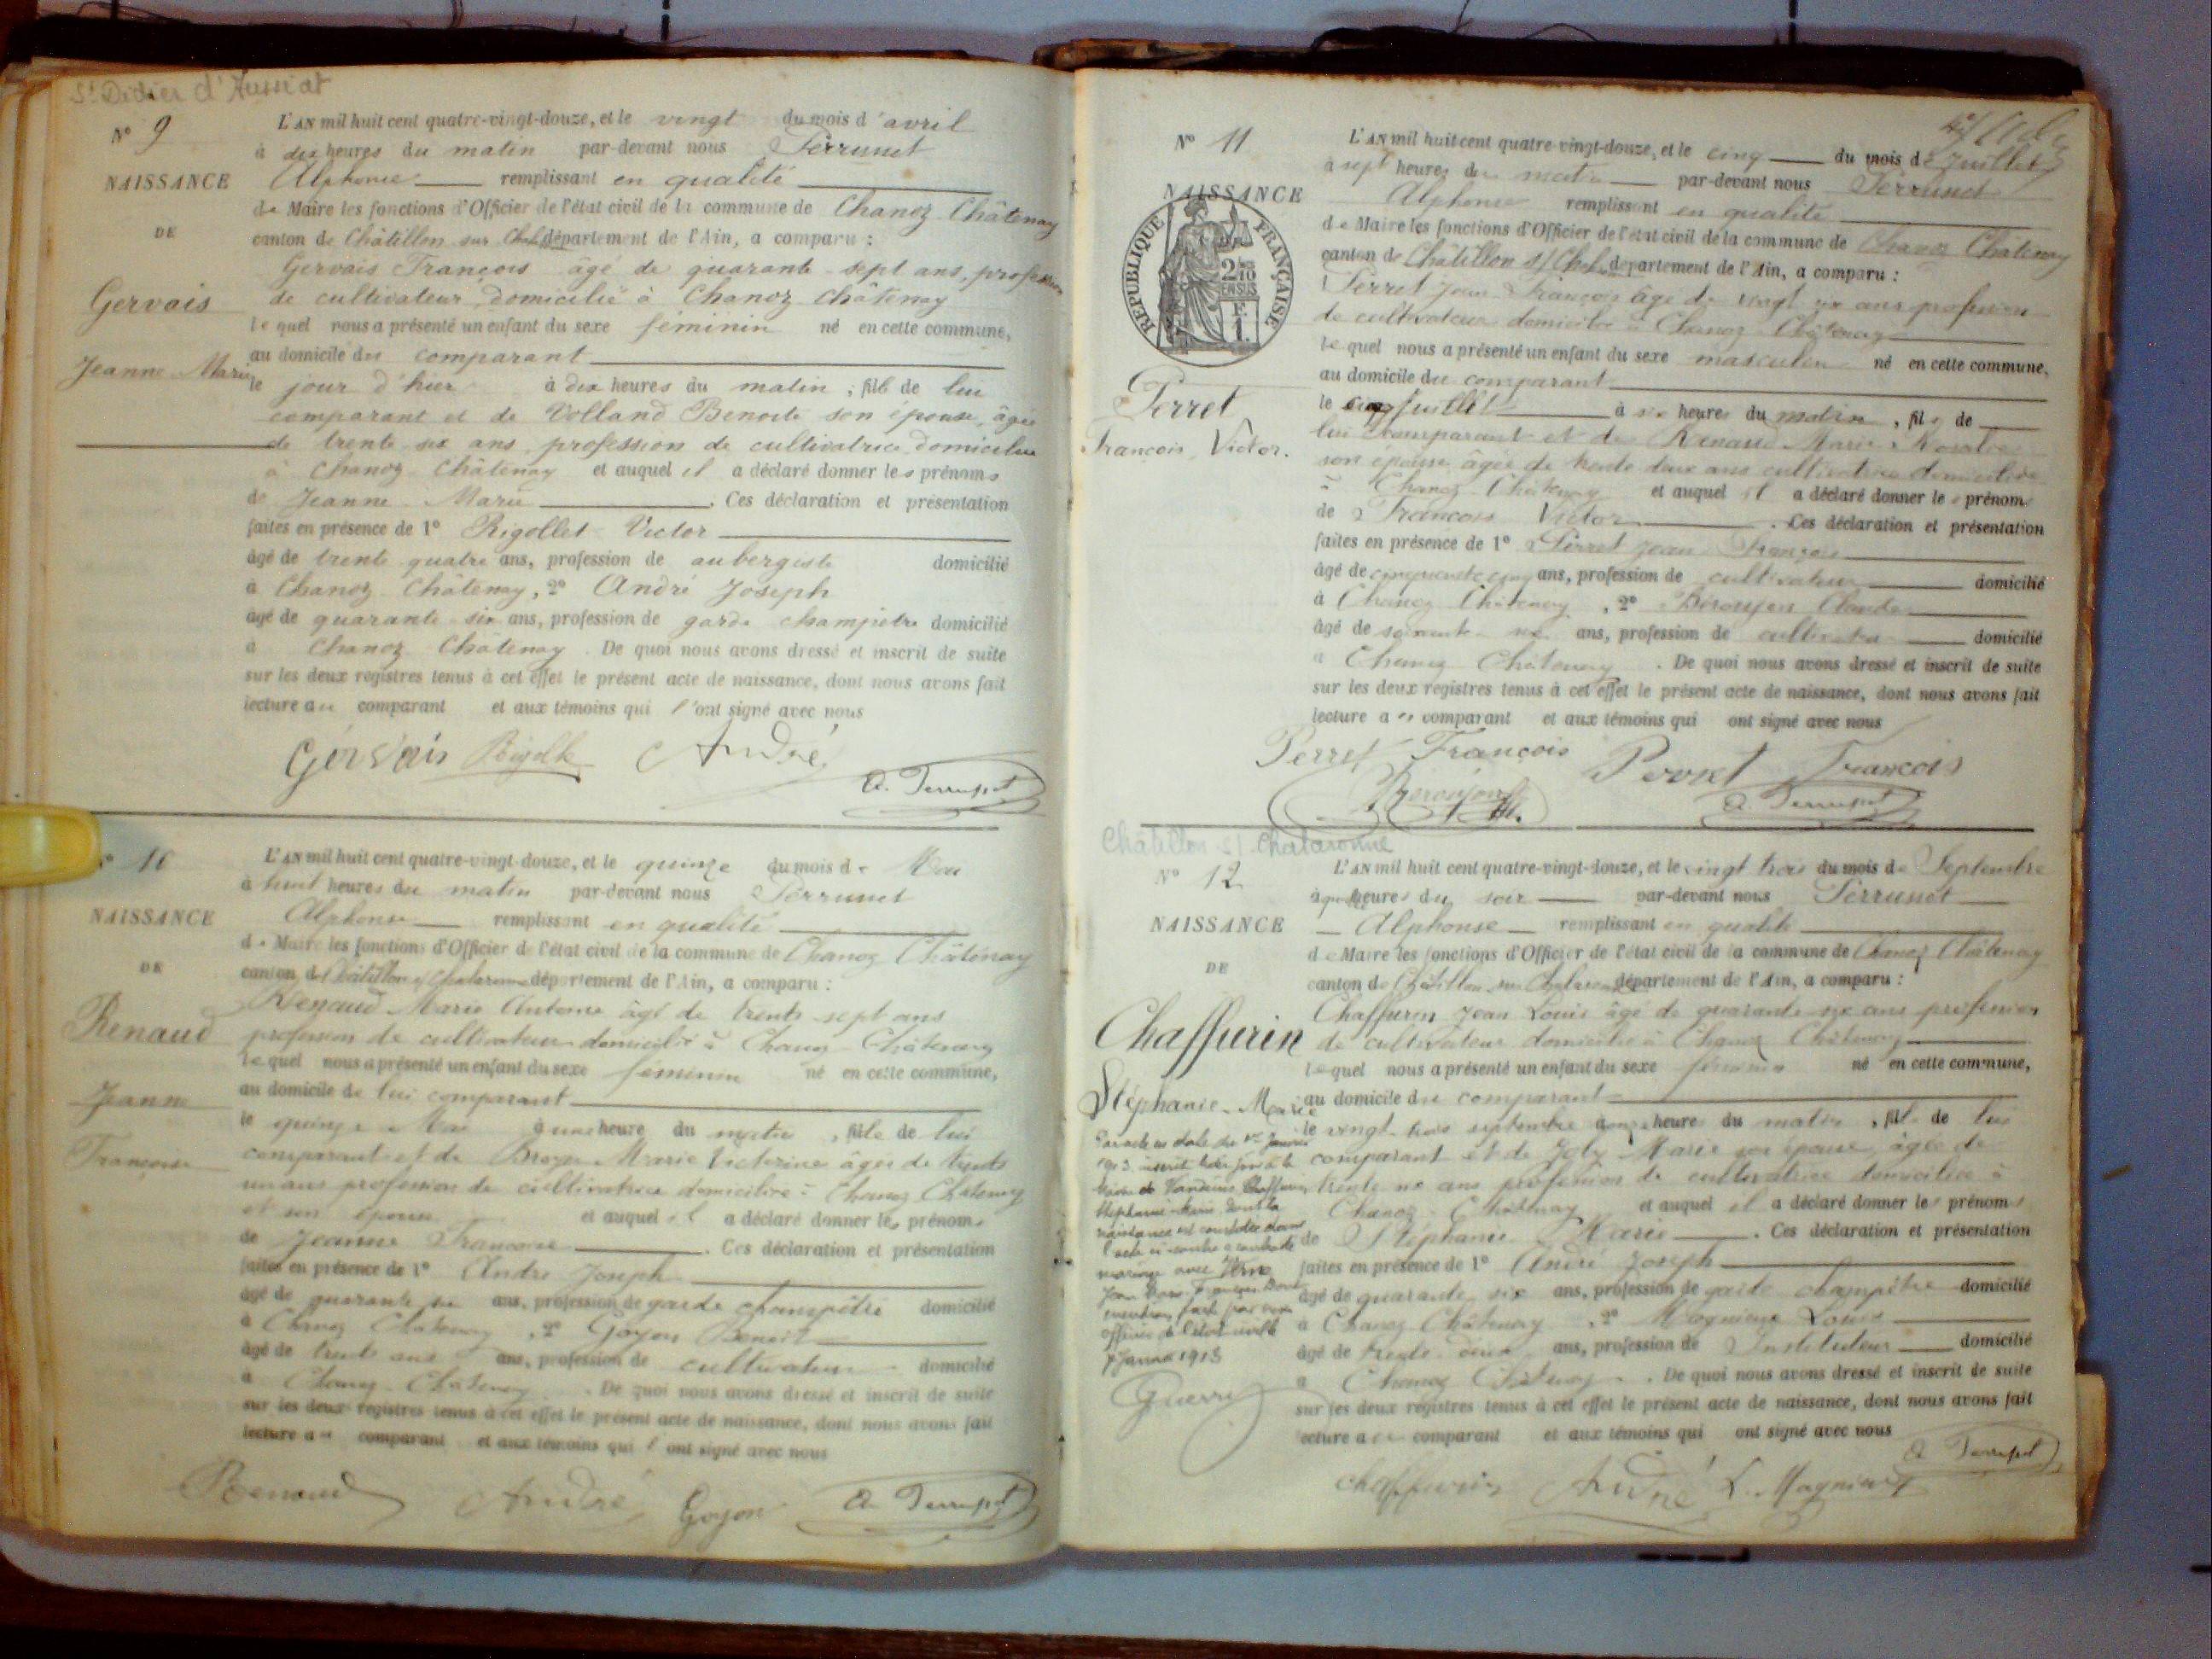 St Didier d'Aussiat
N° 9
NAISSANCE
DE
Gervais
Jeanne Marie
L'AN mil huit cent quatre-vingt-douze, et le vingt du mois d'avril
à dix heures du matin par-devant nous Perrunet
Alphonse remplissant en qualité
de Maire les fonctions d'Officier de l'état civil de la commune de Chanoz Châtenay
canton de Châtillon sur Chal. département de l'Ain, a comparu :
Gervais François âgé de quarante-sept ans, profession
de cultivateur, domicilié à Chanoz Châtenay
lequel nous a présenté un enfant du sexe féminin né en cette commune,
au domicile du comparant
le jour d'hier à dix heures du matin ; fille de lui
comparant et de Volland Benoite son épouse, âgée
de trente six ans, profession de cultivatrice domiciliée
à Chanoz Châtenay et auquel il a déclaré donner les prénoms
de Jeanne Marie . Ces déclaration et présentation
faites en présence de 1° Rigollet Victor
âgé de trente quatre ans, profession de aubergiste domicilié
à Chanoz Châtenay, 2° André Joseph
âgé de quarante six ans, profession de garde champêtre domicilié
à Chanoz Châtenay . De quoi nous avons dressé et inscrit de suite
sur les deux registres tenus à cet effet le présent acte de naissance, dont nous avons fait
lecture au comparant et aux témoins qui l'ont signé avec nous
Gervais André
A. Perrunet
N° 10
NAISSANCE
DE
Renaud
Jeanne
Françoise
L'AN mil huit cent quatre-vingt-douze, et le quinze du mois de Mai
à huit heures du matin par-devant nous Perrunet
Alphonse remplissant en qualité
de Maire les fonctions d'Officier de l'état civil de la commune de Chanoz Châtenay
canton de Châtillon s/ Chalaronne département de l'Ain, a comparu :
Renaud Marie Antoine âgé de trente sept ans
profession de cultivateur domicilié à Chanoz Châtenay
lequel nous a présenté un enfant du sexe féminin né en cette commune,
au domicile de lui comparant
le quinze Mai à une heure du matin , fille de lui
comparant et de Marie Victorine âgée de trente
un ans profession de cultivatrice domiciliée à Chanoz Châtenay
et son épouse et auquel il a déclaré donner les prénoms
de Jeanne Françoise . Ces déclaration et présentation
faites en présence de 1° André Joseph
âgé de quarante six ans, profession de garde champêtre domicilié
à Chanoz Châtenay , 2° Goyon Benoit
âgé de trente ans ans, profession de cultivateur domicilié
à Chanoz Châtenay . De quoi nous avons dressé et inscrit de suite
sur les deux registres tenus à cet effet le présent acte de naissance, dont nous avons fait
lecture au comparant et aux témoins qui l'ont signé avec nous
Renaud André Goyon A. Perrunet
N° 11
NAISSANCE
RÉPUBLIQUE FRANÇAISE
2/10
EN SUS
F.
1.
Perret
François Victor.
L'AN mil huit cent quatre-vingt-douze, et le cinq du mois de Juillet
à sept heures du matin par-devant nous Perrunet
Alphonse remplissant en qualité
de Maire les fonctions d'Officier de l'état civil de la commune de Chanoz Châtenay
canton de Châtillon s/ Chal. département de l'Ain, a comparu :
Perret Jean François âgé de vingt six ans profession
de cultivateur domicilié à Chanoz Châtenay
lequel nous a présenté un enfant du sexe masculin né en cette commune,
au domicile du comparant
le cinq juillet à six heures du matin , fils de
lui comparant et de Renaud Marie
son épouse âgée de trente deux ans cultivatrice domiciliée
à Chanoz Châtenay et auquel il a déclaré donner les prénoms
de François Victor . Ces déclaration et présentation
faites en présence de 1° Perret Jean François
âgé de cinquante cinq ans, profession de cultivateur domicilié
à Chanoz Châtenay , 2° Béroujon Claude
âgé de soixante six ans, profession de cultivateur domicilié
à Chanoz Châtenay . De quoi nous avons dressé et inscrit de suite
sur les deux registres tenus à cet effet le présent acte de naissance, dont nous avons fait
lecture au comparant et aux témoins qui ont signé avec nous
Perret François Perret François
Beroujon A. Perrunet
Châtillon s/ Chalaronne
N° 12
NAISSANCE
DE
Chaffurin
Stéphanie Marie
L'AN mil huit cent quatre-vingt-douze, et le vingt trois du mois de Septembre
heures du soir par-devant nous Perrunet
Alphonse remplissant en qualité
de Maire les fonctions d'Officier de l'état civil de la commune de Chanoz Châtenay
canton de Châtillon sur Chalaronne département de l'Ain, a comparu :
Chaffurin Jean Louis âgé de quarante six ans profession
de cultivateur domicilié à Chanoz Châtenay
lequel nous a présenté un enfant du sexe féminin né en cette commune,
au domicile du comparant
le vingt trois septembre à onze heures du matin , fille de lui
comparant et de Joly Marie son épouse âgée de
trente six ans profession de cultivatrice domiciliée à
Chanoz Châtenay et auquel il a déclaré donner les prénoms
de Stéphanie Marie . Ces déclaration et présentation
faites en présence de 1° André Joseph
âgé de quarante six ans, profession de garde champêtre domicilié
à Chanoz Châtenay , 2° Magnieux Louis
âgé de trente deux ans, profession de Instituteur domicilié
à Chanoz Châtenay . De quoi nous avons dressé et inscrit de suite
sur les deux registres tenus à cet effet le présent acte de naissance, dont nous avons fait
lecture au comparant et aux témoins qui ont signé avec nous
A. Perrunet
chaffurin André L. Magnieux
Par acte en date du 1er Janvier
1913 inscrit
mairie de Vandeins Chaffurin
Stéphanie Marie dont la
naissance est constatée dans
l'acte ci-contre a contracté
mariage avec
mention faite par nous
officier de l'état civil le
7 Janvier 1913
Guerry